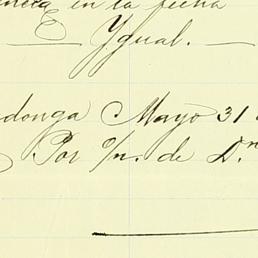 en la fecha
Ygual.
donga Mayo 31
Por o/n. de Dn.